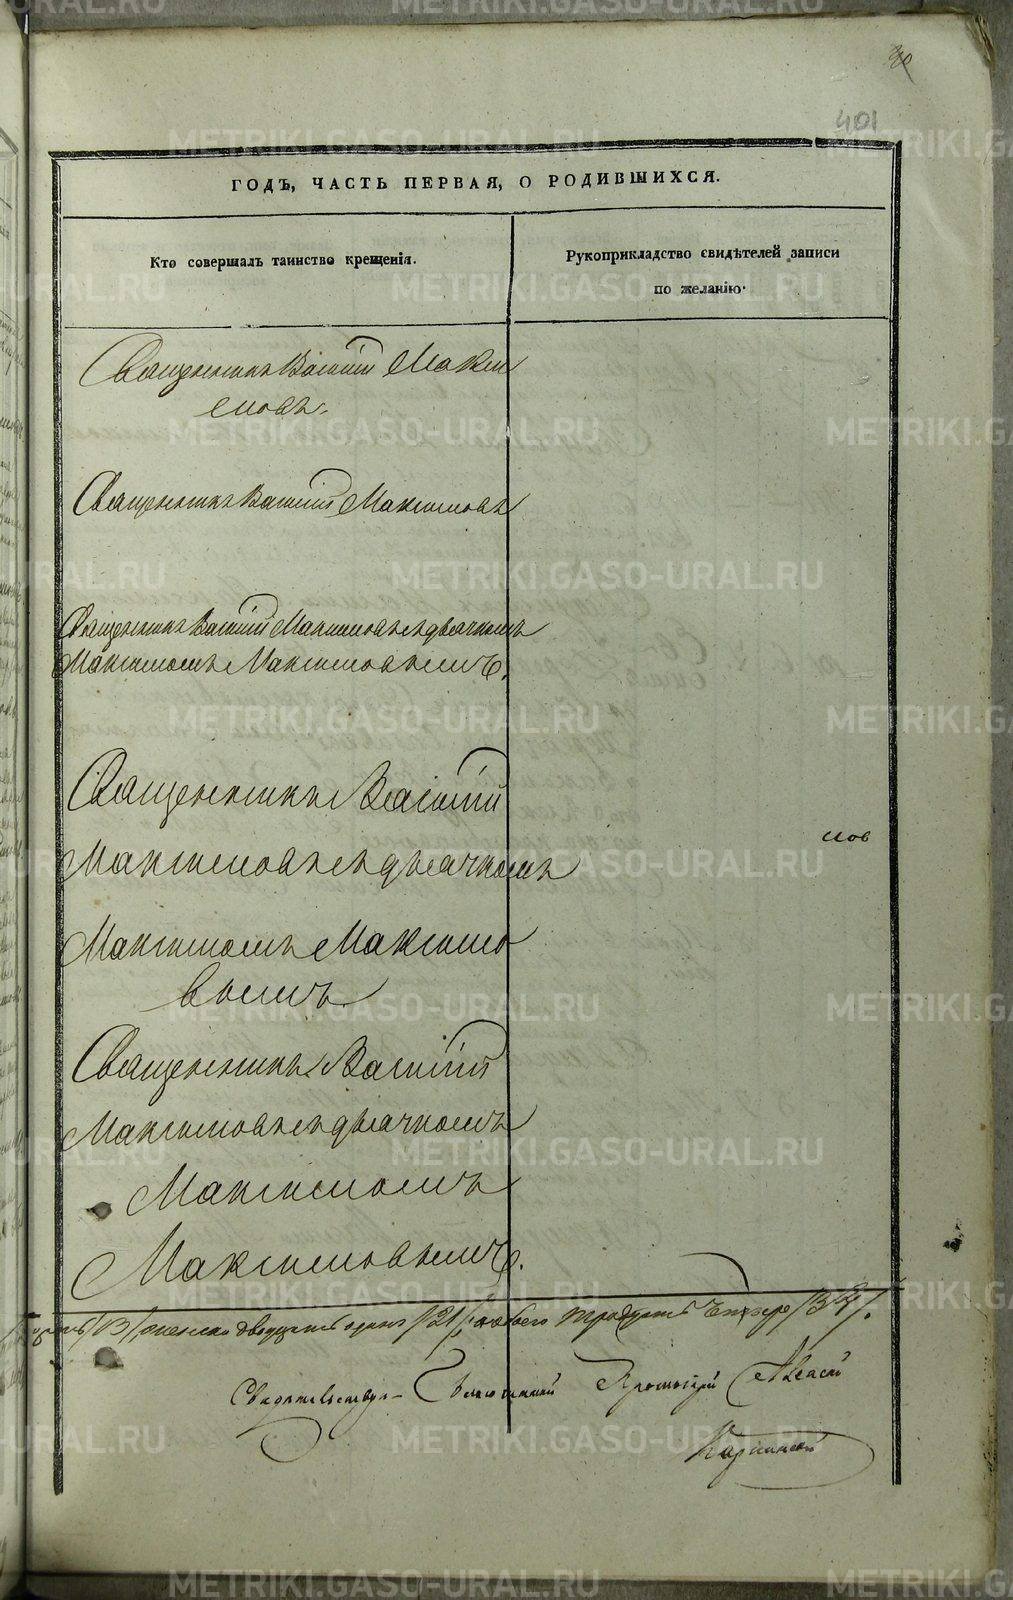 401
ГОДЪ, ЧАСТЬ ПЕРВАЯ, О РОДИВШИХСЯ.
Кто совершалъ таинство крещенія.
Рукоприкладство свидѣтелей записи
по желанію.
Священникъ Василій Макси
мовъ.
Священникъ Василій Максимовъ
Священникъ Василій Максимовъ съ дьячкомъ
Максимомъ Максимовымъ.
Священникъ Василій
Максимовъ съ дьячкомъ
Максимомъ Максимо
вымъ
Священникъ Василій
Максимовъ съ дьячкомъ
Максимомъ
Максимовымъ.
/13/ женска двадцать одинъ /21/, а обоего тридцать четыре /34/.
Свидѣтельствовалъ Благочинный Протоіерей
METRIKI.GASO-URAL.RU